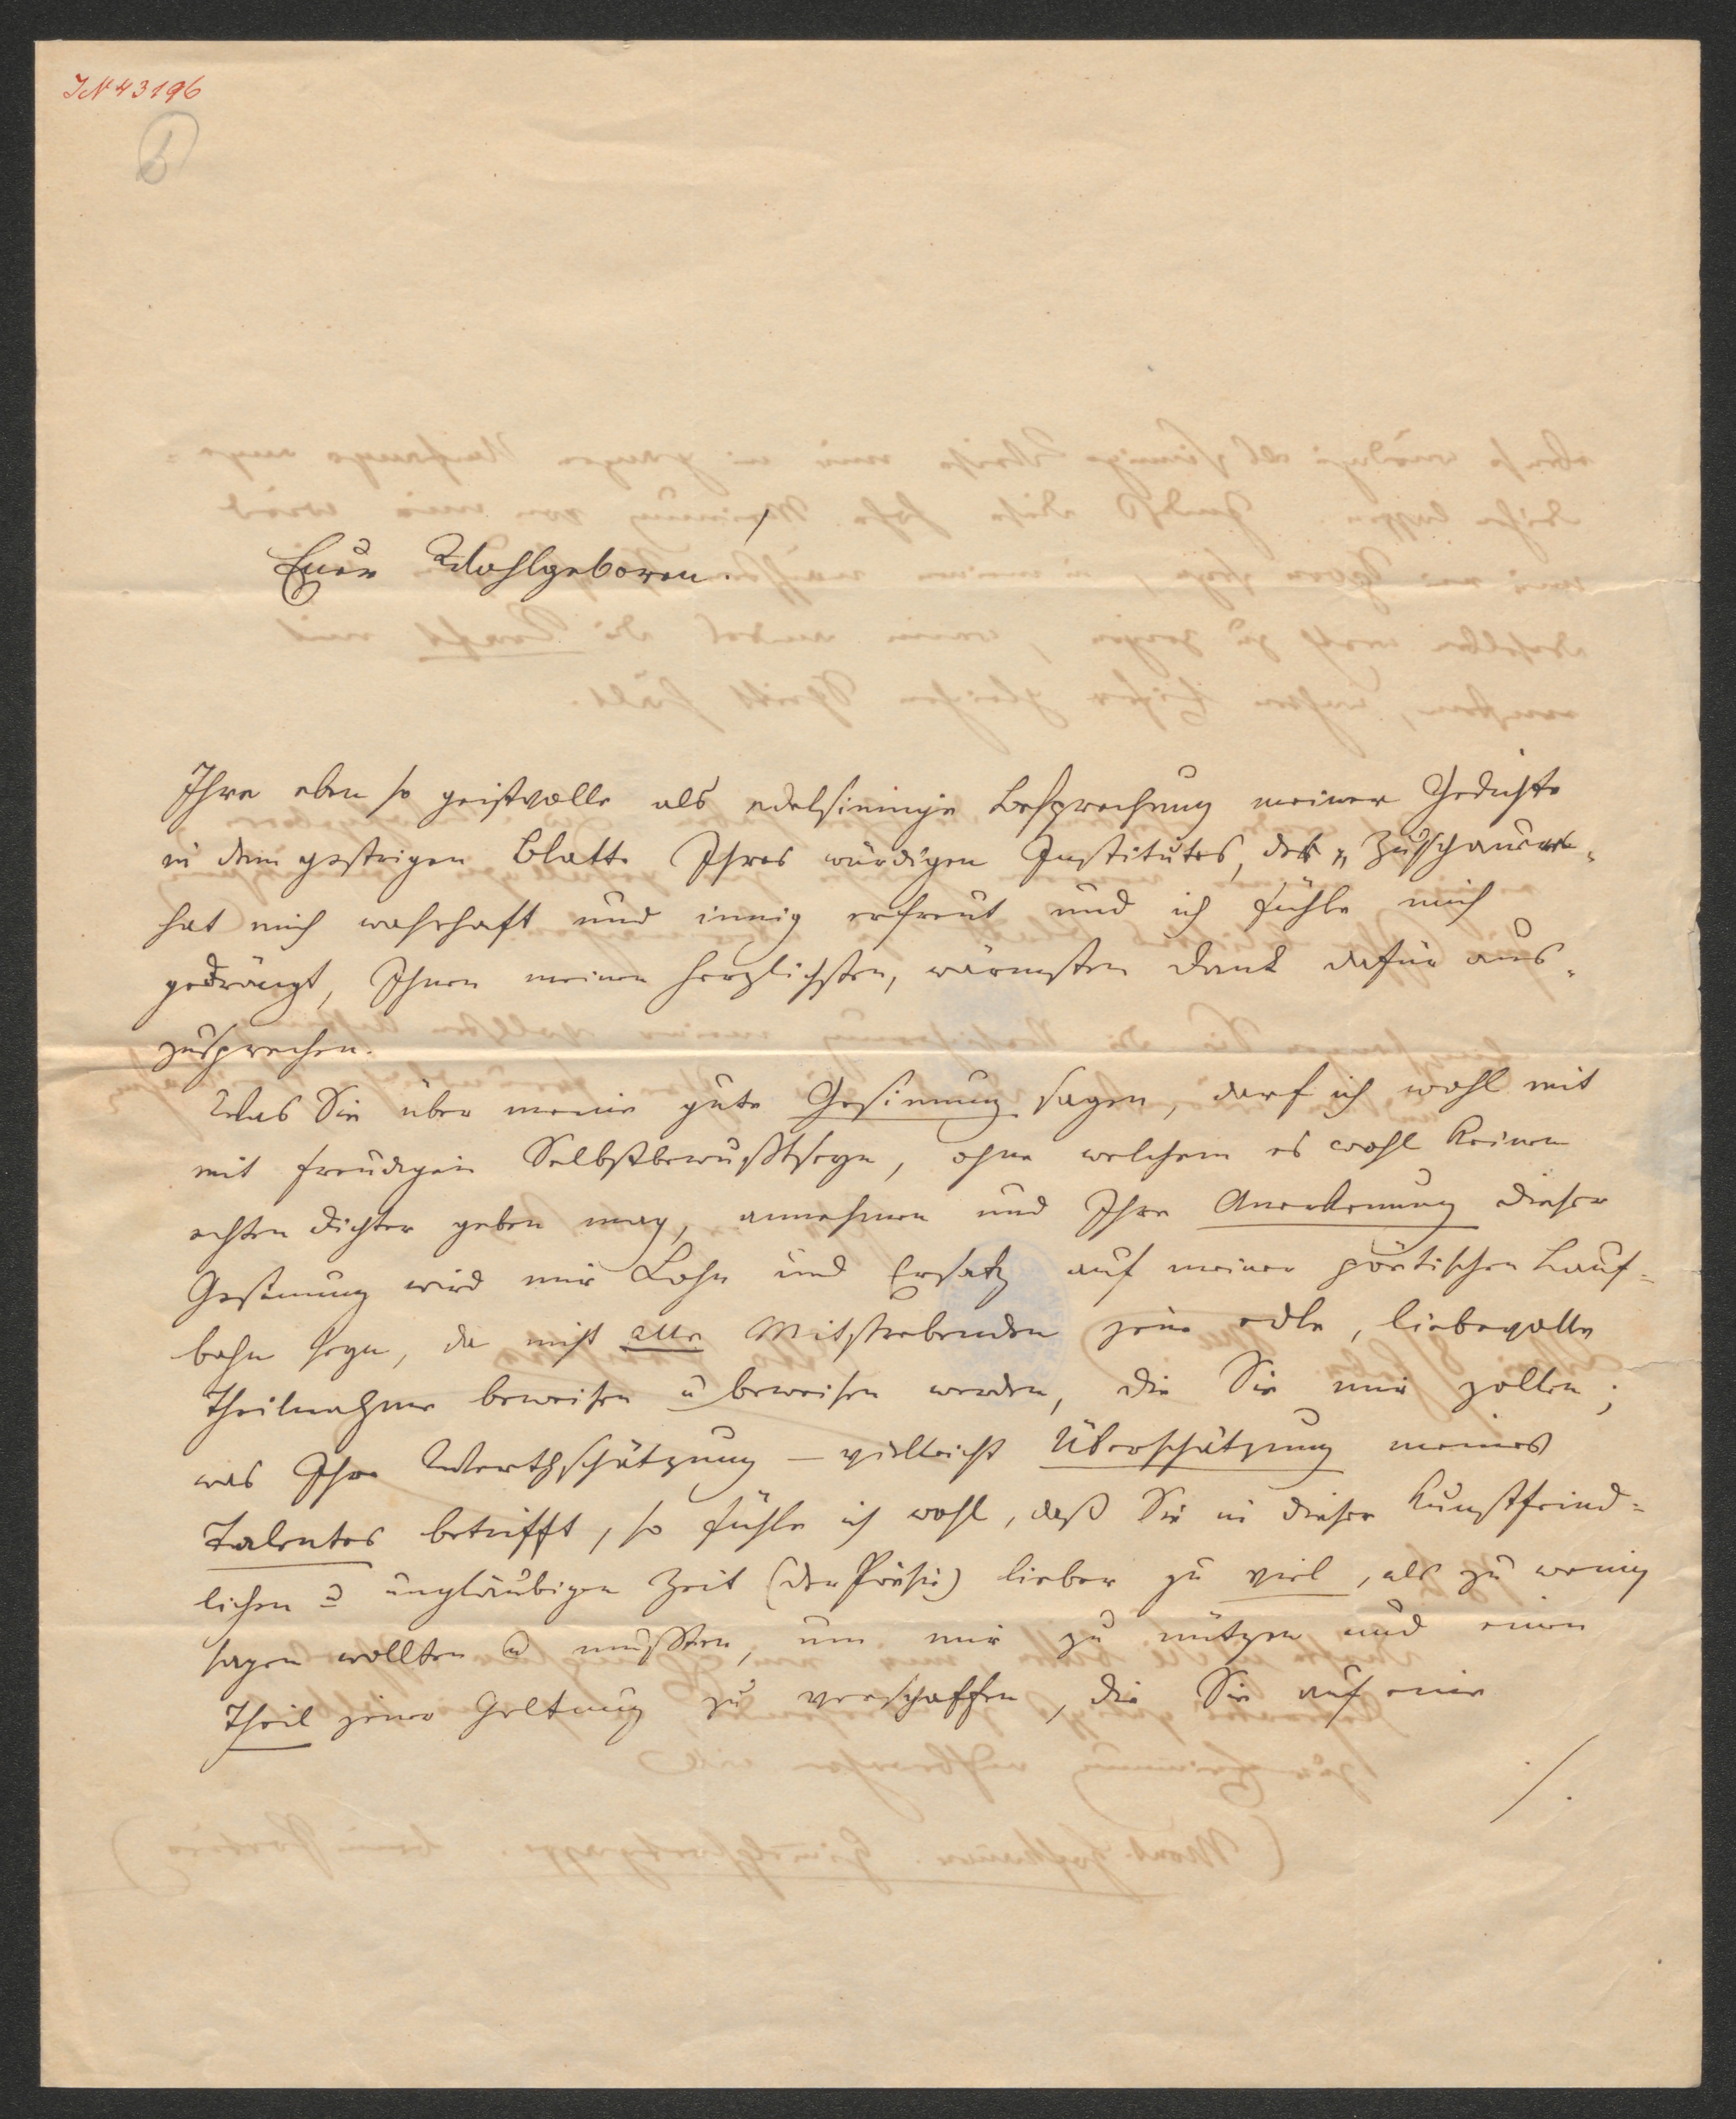 IN 43196
Euer Wohlgeboren!
Ihre eben so geistvolle als edelsinnige Besprechung meiner Gedichte
in dem gestrigen Blatte Ihres würdigen Institutes, des „Zuschauers"
hat mich wahrhaft und innig erfreut und ich fühle mich
gedrängt, Ihnen meinen herzlichsten, wärmsten Dank dafür aus-
zusprechen.
Was Sie über meine gute Gesinnung sagen, darf ich wohl mit
mit freudigem Selbstbewußtseyn, ohne welchem es wohl keinen
echten Dichter geben mag, annehmen und Ihre Anerkennung dieser
Gesinnung wird mir Lohn und Ersatz auf meiner poëtischen Lauf-
bahn seyn, da nicht alle Mitstrebenden jene edle, liebevolle
Theilnahme beweisen u beweisen werden, die Sie mir zollen;
was Ihre Werthschätzung – vielleicht Überschätzung meines
Talentes betrifft, so fühle ich wohl, daß Sie in dieser kunstfeind-
lichen u ungläubigen Zeit (der Poësie) lieber zu viel, als zu wenig
sagen wollten u mußten, um mir zu nützen und einen
Theil jener Geltung zu verschaffen, die Sie auf eine
./.